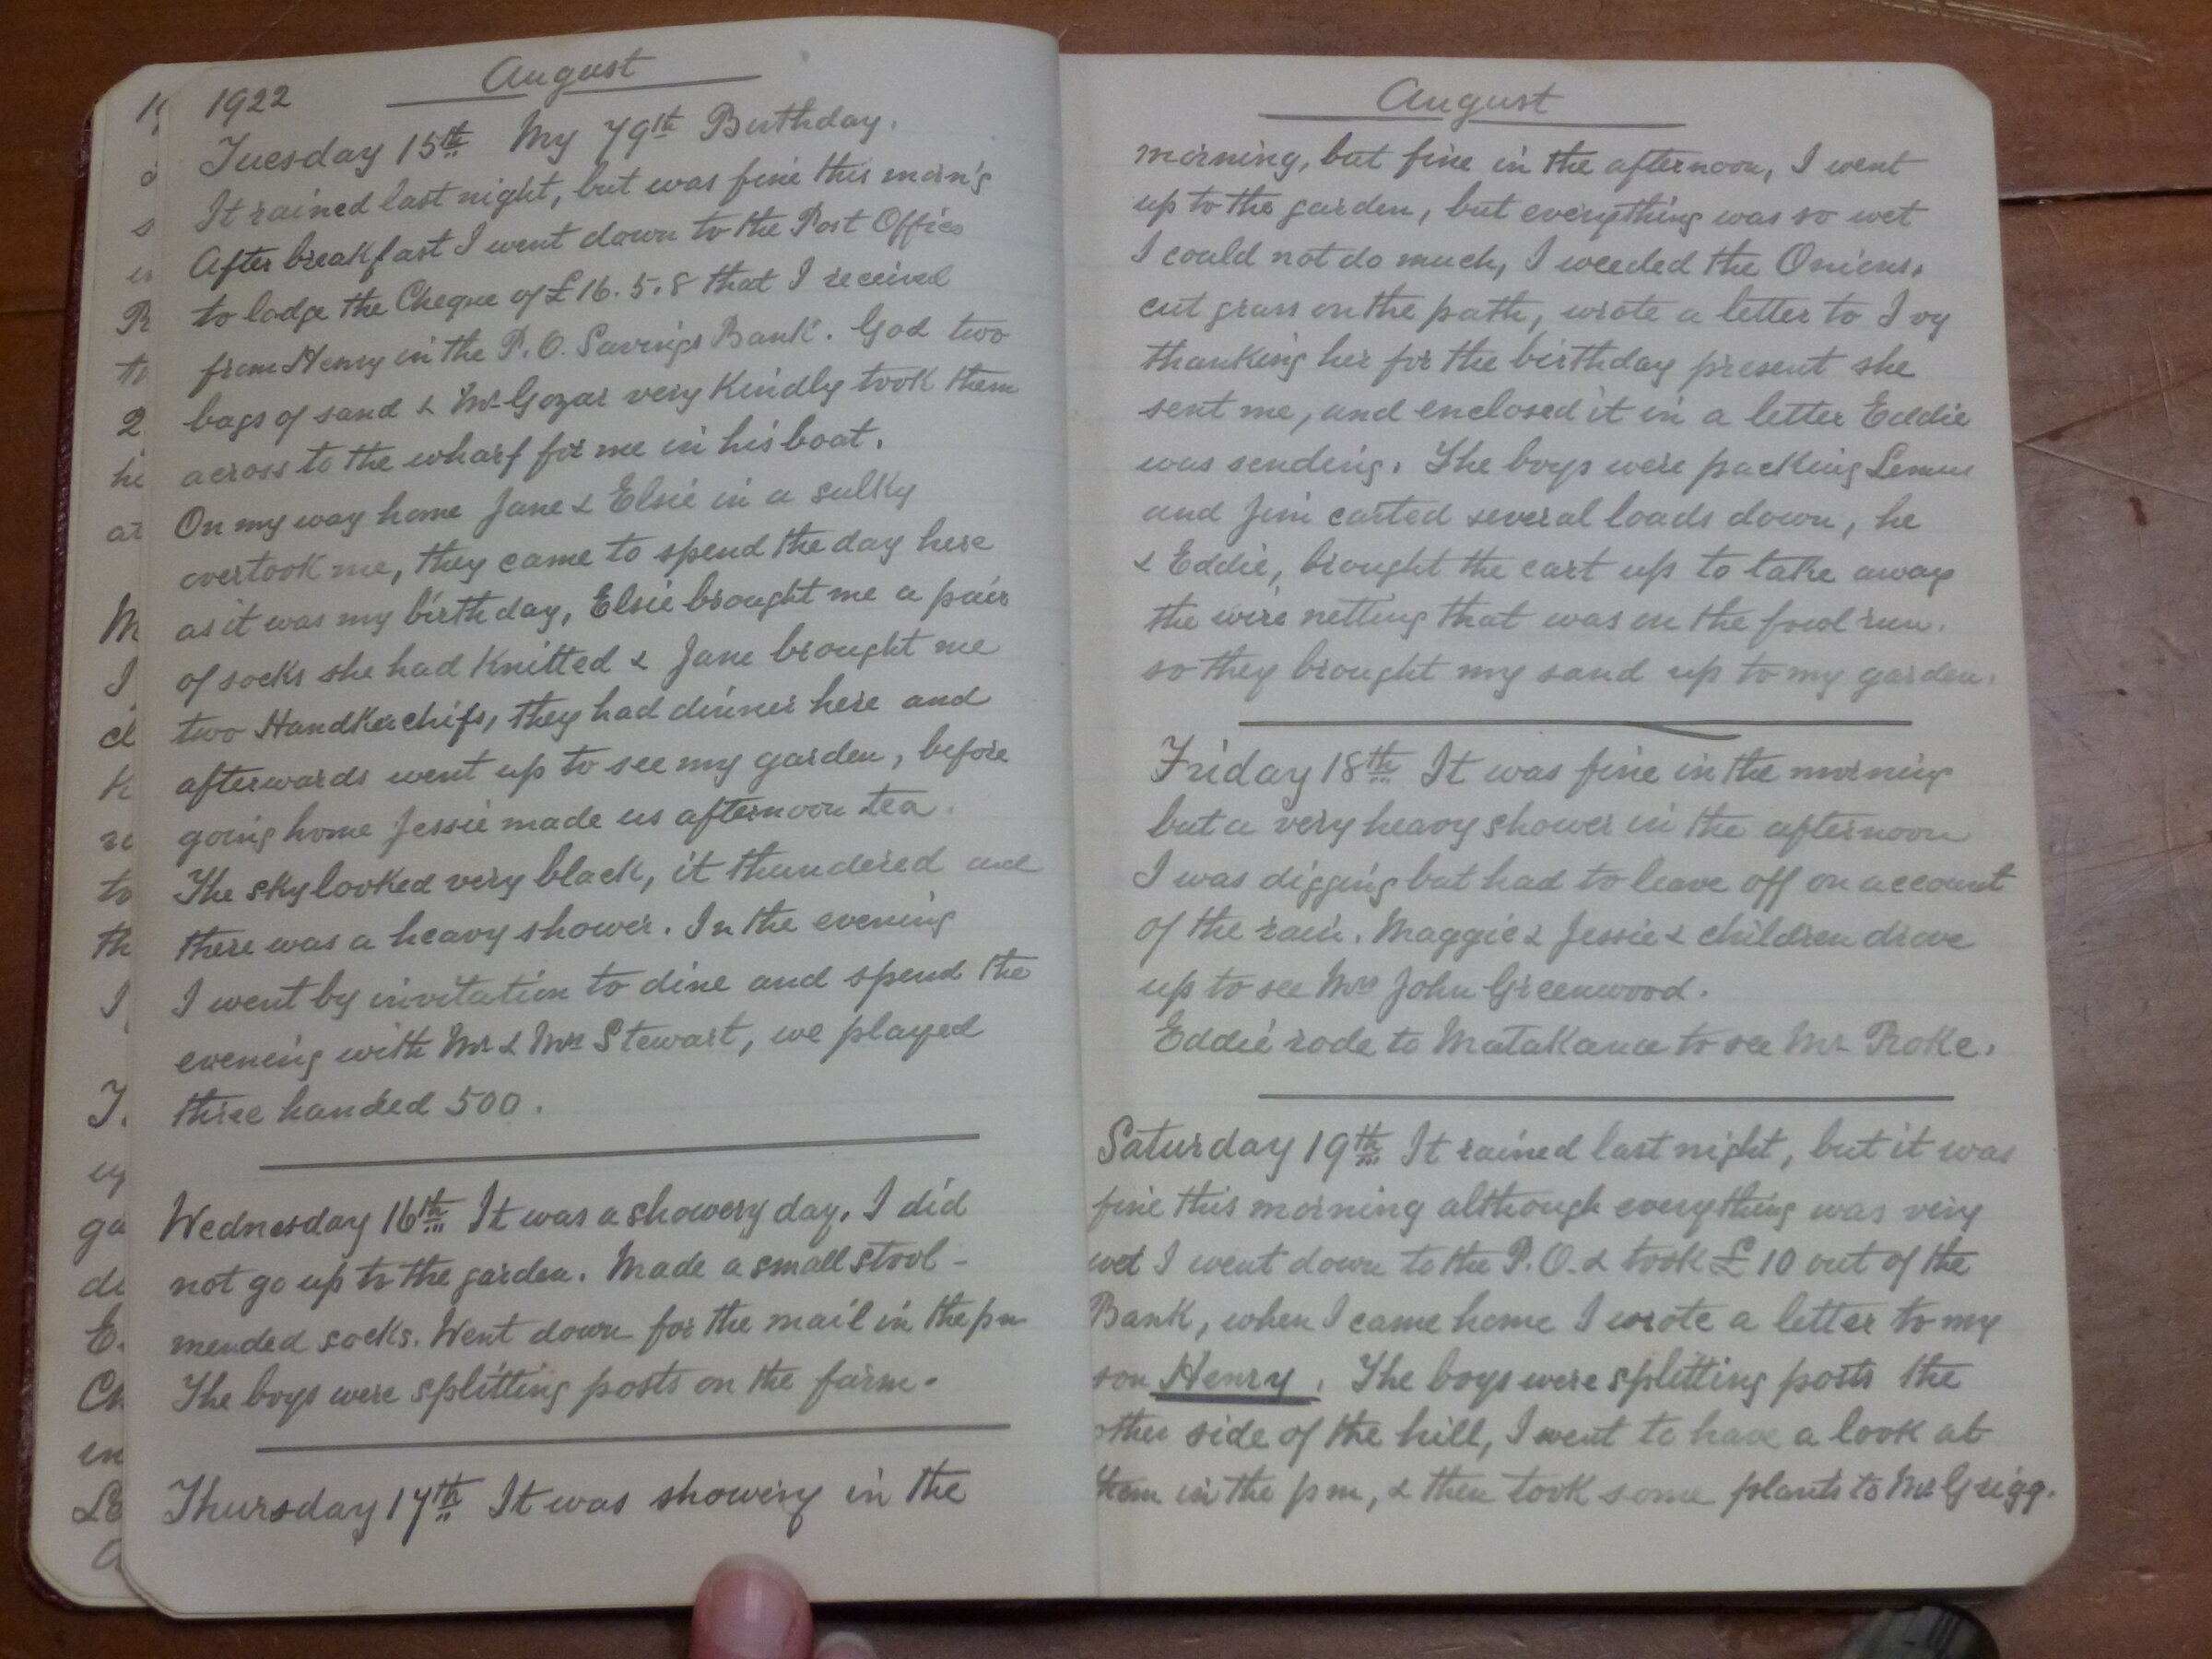 1922
August
Tuesday 15th My 79th Birthday.
It rained last night, but was fine this morn'g
After breakfast I went down to the Post Office
to lodge the Cheque of £16.5.8 that I received
from Henry in the P.O. Savings Bank. God two
bags of sand & Mr Gozar very kindly took them
across to the wharf for me in his boat.
On my way home Jane & Elsie in a sulky
overtook me, they came to spend the day here
as it was my birthday, Elsie brought me a pair
of socks she had knitted & Jane brought me
two Handkerchifs, they had dinner here and
afterwards went up to see my garden, before
going home Jessie made us afternoon tea.
The sky looked very black, it thundered and
there was a heavy shower. In the evening
I went by invitation to dine and spend the
evening with Mr & Mrs Stewart, we played
three handed 500.
Wednesday 16th It was a showery day. I did
not go up to the garden. Made a small stool -
mended socks. Went down for the mail in the pm
The boys were splitting posts on the farm.
Thursday 17th It was showery in the
August
morning, but fine in the afternoon, I went
up to the garden, but everything was so wet
I could not do much, I weeded the Onions,
cut grass on the path, wrote a letter to Ivy
thanking her for the birthday present she
sent me, and enclosed it in a letter Eddie
was sending. The boys were packing Lemons
and Jim carted several loads down, he
& Eddie, brought the cart up to take away
the wire netting that was on the fowl run.
so they brought my sand up to my garden.
Friday 18th It was fine in the morning
but a very heavy shower in the afternoon
I was digging but had to leave off on account
of the rain. Maggie & Jessie & children drove
up to see Mrs John Greenwood.
Eddie rode to Matakana to see Mr Roke.
Saturday 19th It rained last night, but it was
fine this morning although everything was very
wet I went down to the P.O. & took £10 out of the
Bank, when I came home I wrote a letter to my
son Henry. The boys were splitting posts the
other side of the hill, I went to have a look at
them in the pm, & then took some plants to Mr Grigg.